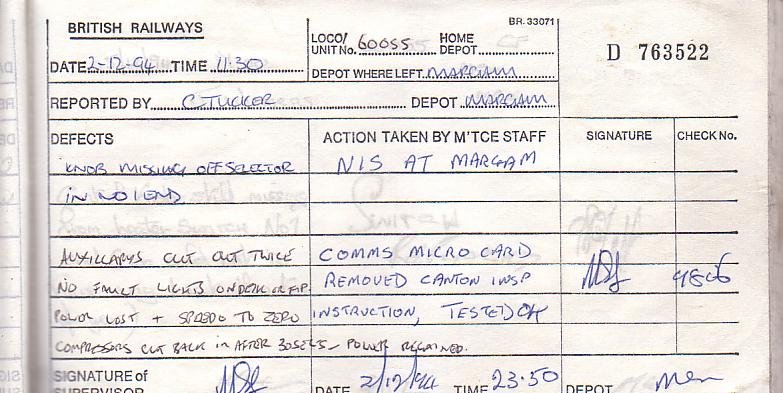 BR. 33071
BRITISH RAILWAYS
LOCO/ UNIT No. 60055 HOME DEPOT
D 763522
DATE 2-12-94 TIME 11:30
DEPOT WHERE LEFT MARGAM
REPORTED BY C.TUCKER DEPOT MARGAM
DEFECTS ACTION TAKEN BY M'TCE STAFF SIGNATURE CHECK No.
KNOB MISSING OFF SELECTOR NIS AT MARGAM
IN NO 1 END
AUXILLARYS CUT OUT TWICE COMMS MICRO CARD
NO FAULT LIGHTS ON DESK OR F.P. REMOVED CANTON INSP 9806
POWER LOST + SPEEDO TO ZERO INSTRUCTION, TESTED OK
COMPRESSORS CUT BACK IN AFTER 30 SECS - POWER REGAINED.
SIGNATURE of SUPERVISOR DATE 2/12/94 TIME 23.50 DEPOT